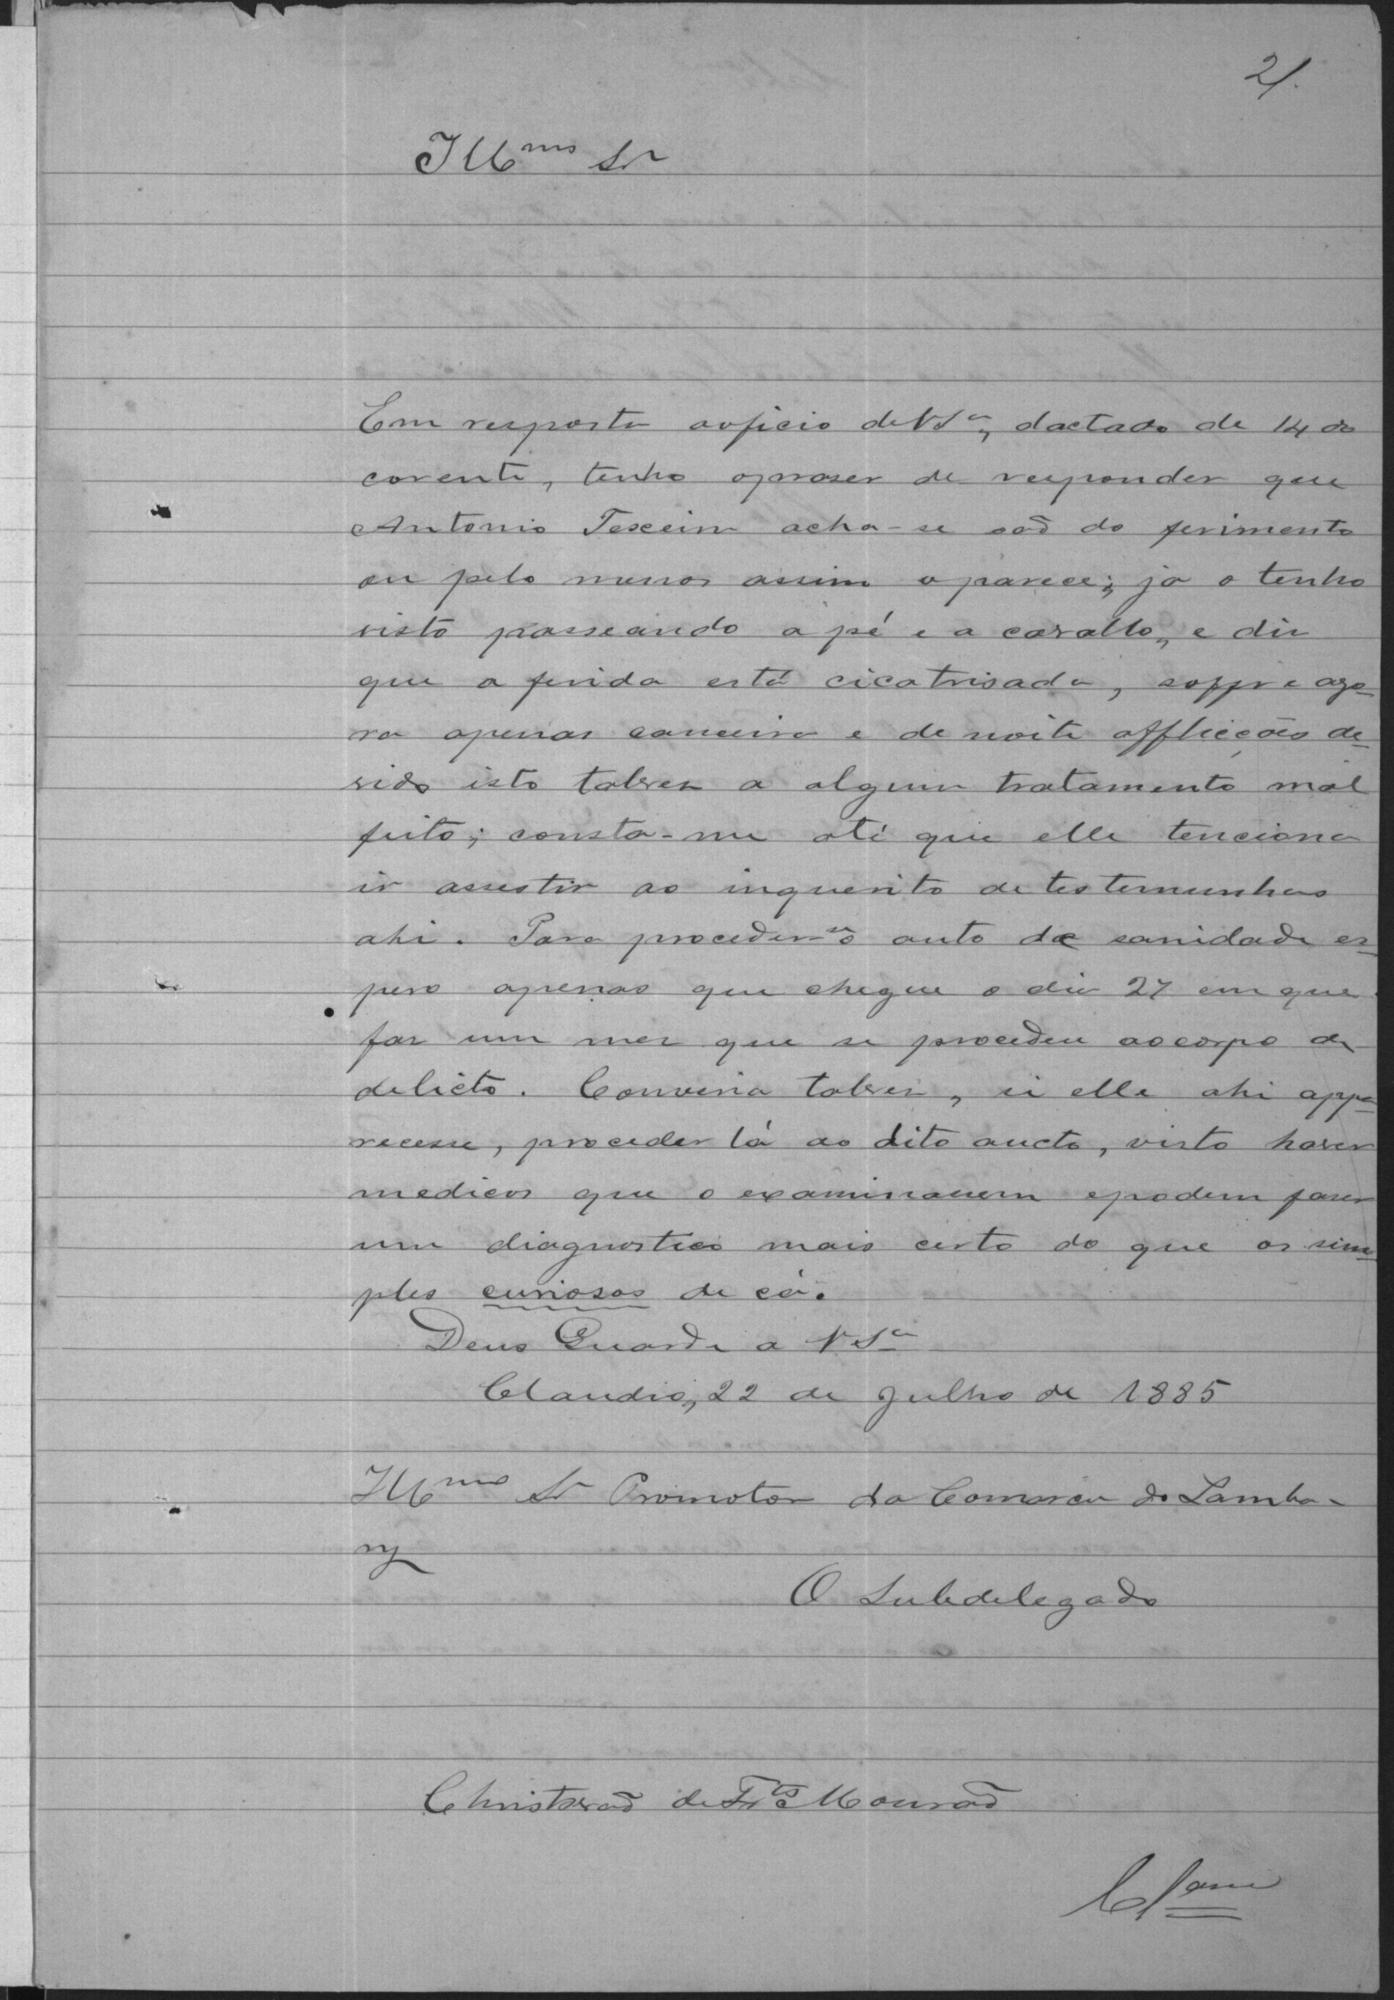 21.
Illmo Sr
Em resposta aoficio de V Sa, dactado de 14 do
corente, tenho opraser de responder que
Antonio Texeira acha-se saõ do ferimento
ou pelo menos assim o parece; ja o tenho
visto passeando a pé e a cavallo, e diz
que a ferida está cicatrisada, soffre ago-
ra apenas canceira e de noite afflicções de-
vido isto talvez a algum tratamento mal
feito; consta-me até que elle tenciona
ir assestir ao inquerito de testemunhas
ahi. Para proceder-se o auto de sanidade es-
pero apenas que chegue o dia 27 em que
faz um mez que se procedeu ao corpo de
delicto. Conviria talvez, si elle ahi appa-
recesse, proceder lá ao dito aucto, visto haver
medicos que o examinassem epodem faser
um diagnostico mais certo do que os sim-
ples curiosos de cá.
Deus Guarde a V Sa
Claudio, 22 de Julho de 1885
Illmo Sr Promotor da Comarca do Lamba-
ry
O Subdelegado
Christovaõ de Frtas Mouraõ